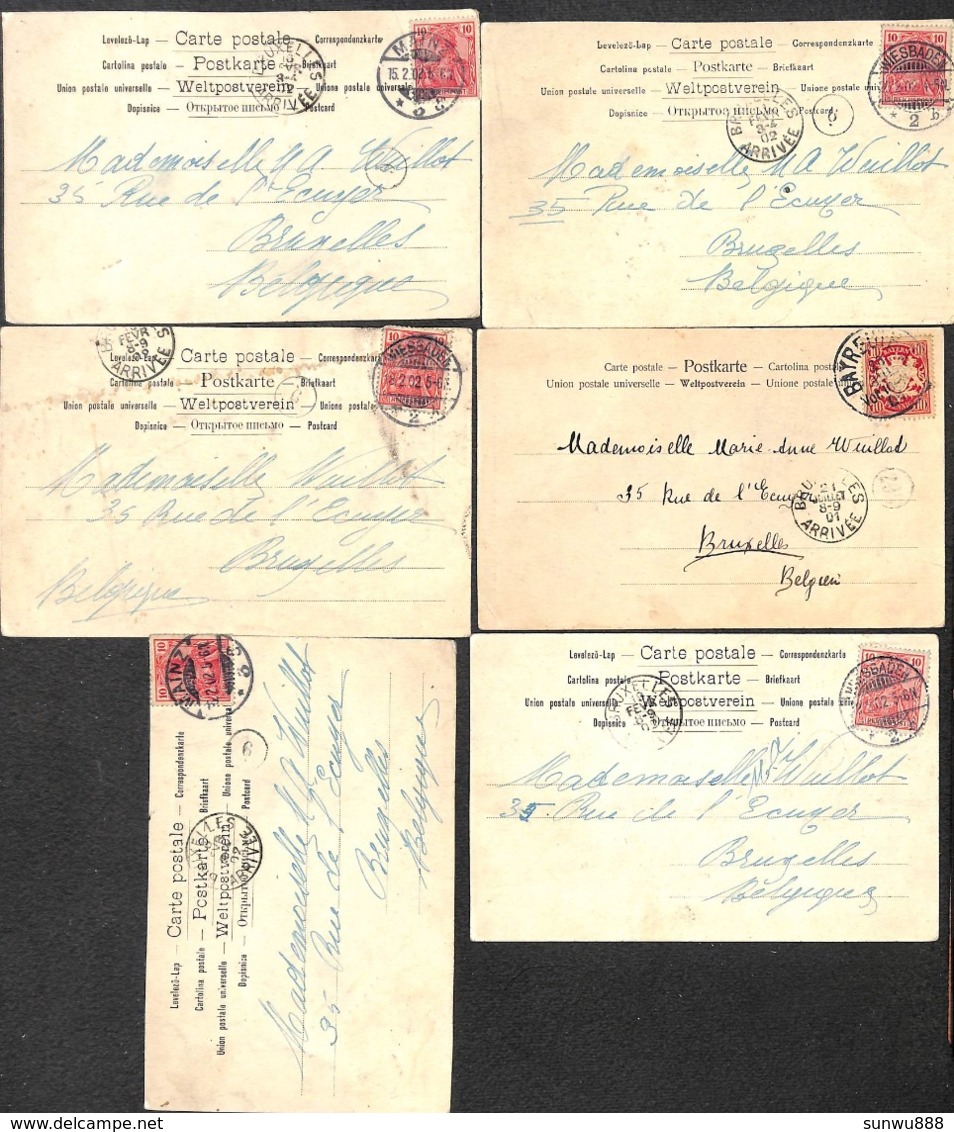 Levelezö-Lap — Carte postale — Correspondenzkarte
Cartolina postale — Postkarte — Briefkaart
Union postale universelle — Weltpostverein — Union postale universelle
Dopisnice — Открытое письмо — Postcard
10
MAINZ
15.2.02 5-6
BRUXELLES
ARRIVÉE
Mademoiselle M A Wuillot
35 Rue de l'Ecuyer
Bruxelles
Belgique
Levelezö-Lap — Carte postale — Correspondenzkarte
Cartolina postale — Postkarte — Briefkaart
Union postale universelle — Weltpostverein
Dopisnice — Открытое письмо — Postcard
10 10
WIESBADEN
* 2 b.
BRUXELLES
FEVR
3-4
02
ARRIVÉE
Mademoiselle M A Wuillot
35 Rue de l'Ecuyer
Bruxelles
Belgique
Levelezö-Lap — Carte postale — Correspondenzkarte
Cartolina postale — Postkarte — Briefkaart
Union postale universelle — Weltpostverein — Union postale
Dopisnice — Открытое письмо — Postcard
10
WIESBADEN
18.2.02 5-6
* 2
FEVR
8-9
ARRIVÉE
Mademoiselle Wuillot
35 Rue de l'Ecuyer
Bruxelles
Belgique
Carte postale — Postkarte — Cartolina postale
Union postale universelle — Weltpostverein — Unione postale
BAYREUTH
Mademoiselle Marie-Anne Wuillot
35 Rue de l'Ecuyer
Bruxelles
Belgien
BRUXELLES
21
JUILLET
8-9
01
ARRIVÉE
Levelezö-Lap — Carte postale — Correspondenzkarte
Cartolina postale — Postkarte — Briefkaart
Union postale universelle — Weltpostverein — Unione postale universale
Dopisnice — Открытое письмо — Postcard
10 10
MAINZ
BRUXELLES
ARRIVÉE
9
Mademoiselle M A Wuillot
35 Rue de l'Ecuyer
Bruxelles
Belgique
Levelezö-Lap — Carte postale — Correspondenzkarte
Cartolina postale — Postkarte — Briefkaart
Union postale universelle — Weltpostverein — Union postale
Dopisnice — Открытое письмо — Postcard
10 10
WIESBADEN
* 2
BRUXELLES
Mademoiselle M A Wuillot
35 Rue de l'Ecuyer
Bruxelles
Belgique
delcampe.net
sunwu888